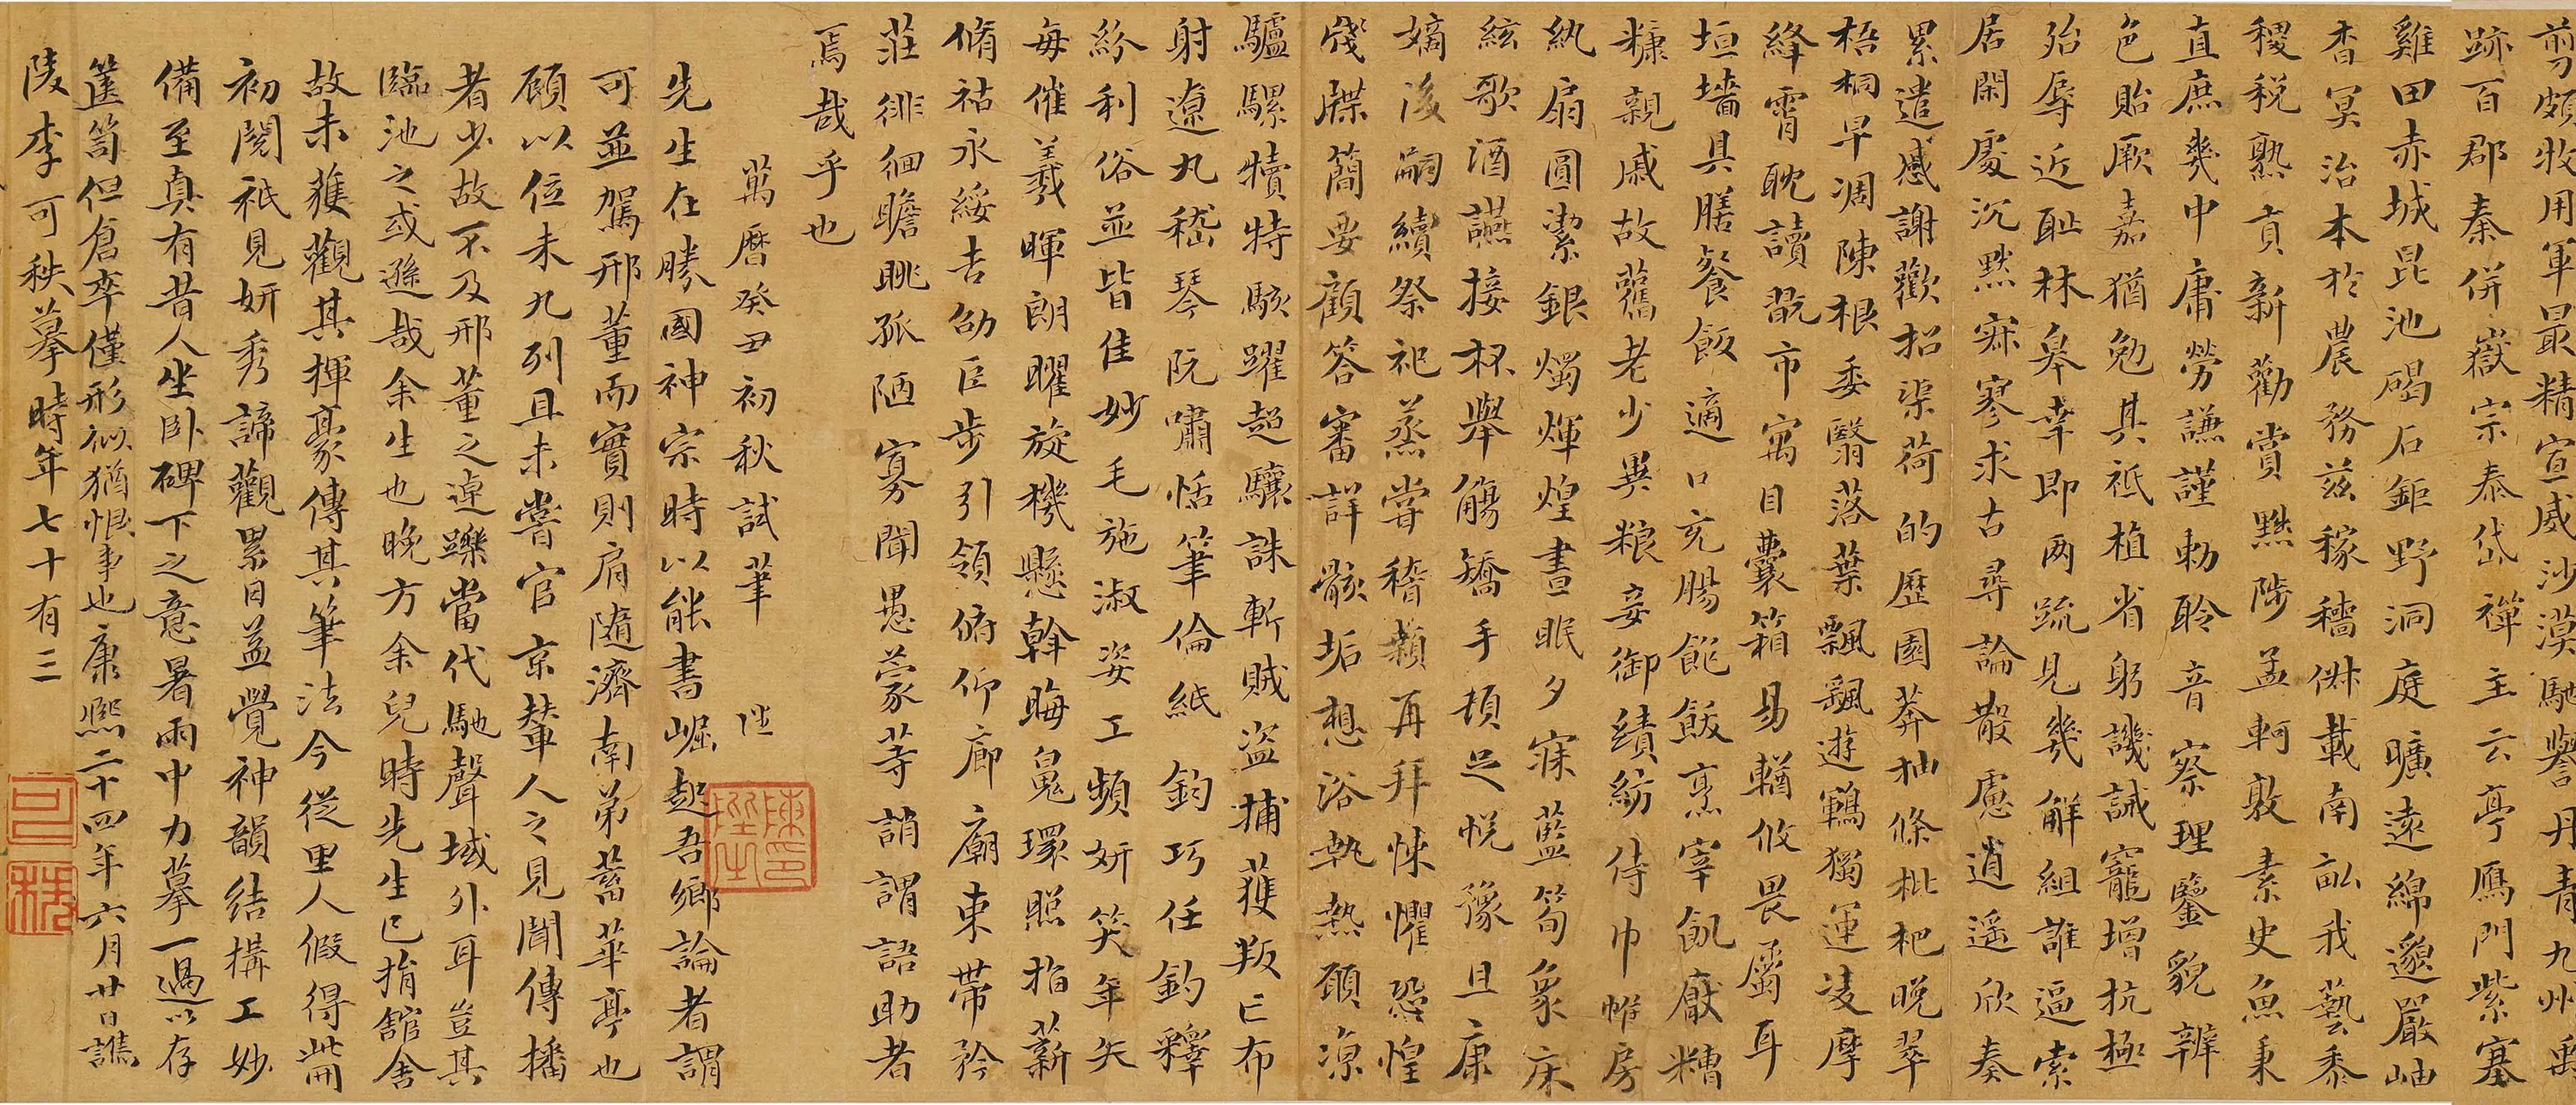 剪頗牧用軍最精宣威沙漠馳譽丹青九州禹
跡百郡秦併嶽宗泰岱禪主云亭鴈門紫塞
雞田赤城昆池碣石鉅野洞庭曠遠綿邈嚴岫
杳冥治本於農務茲稼穡俶載南畝我藝黍
稷稅熟貢新勸賞黜陟孟軻敦素史魚秉
直庶幾中庸勞謙謹勅聆音察理鑒貌辨
色貽厥嘉猶勉其祗植省躬譏誡寵增抗極
殆辱近恥林皋幸即两疏見幾解組誰逼索
居閑處沉默寂寥求古尋論散慮逍遥欣奏
累遣慼謝歡招渠荷的歷園莽抽條枇杷晚翠
梧桐早凋陳根委翳落葉飄颻遊鵾獨運凌摩
絳霄耽讀翫市寓目囊箱易輶攸畏屬耳
垣墻具膳餐飯適口充腸飽飫烹宰飢厭糟
糠親戚故舊老少異粮妾御績紡侍巾帷房
紈扇圓潔銀燭煒煌晝眠夕寐藍筍象床
絃歌酒讌接杯舉觴矯手頓足悅豫且康
嫡後嗣續祭祀蒸嘗稽顙再拜悚懼恐惶
牋牒簡要顧答審詳骸垢想浴執熱願凉
驢騾犢特駭躍超驤誅斬賊盜捕獲叛亡布
射遼丸嵇琴阮嘯恬筆倫紙鈞巧任釣釋
紛利俗並皆佳妙毛施淑姿工頻妍笑年矢
每催羲暉朗曜旋機懸斡晦魄環照指薪
脩祜永綏吉劭巨步引領俯仰廊廟束帶矜
莊徘徊瞻眺孤陋寡聞愚蒙等誚謂語助者
焉哉乎也
萬曆癸丑初秋試筆
先生在勝國神宗時以能書崛起吾鄉論者謂
可並駕邢董而實則肩隨濟南弟蓄華亭也
顧以位未九列且未嘗官京輦人之見聞傳播
者少故不及邢董之逴躒當代馳聲域外耳豈其
臨池之或遜哉余生也晚方余兒時先生已捐舘舍
故未獲觀其揮豪傳其筆法今從里人假得此冊
初閱祇見妍秀諦觀累日益覺神韻結搆工妙
備至真有昔人坐卧碑下之意暑雨中力摹一過以存
篋笥但倉卒僅形似猶恨事也康熙二十四年六月廿日譙
陵李可秩摹時年七十有三